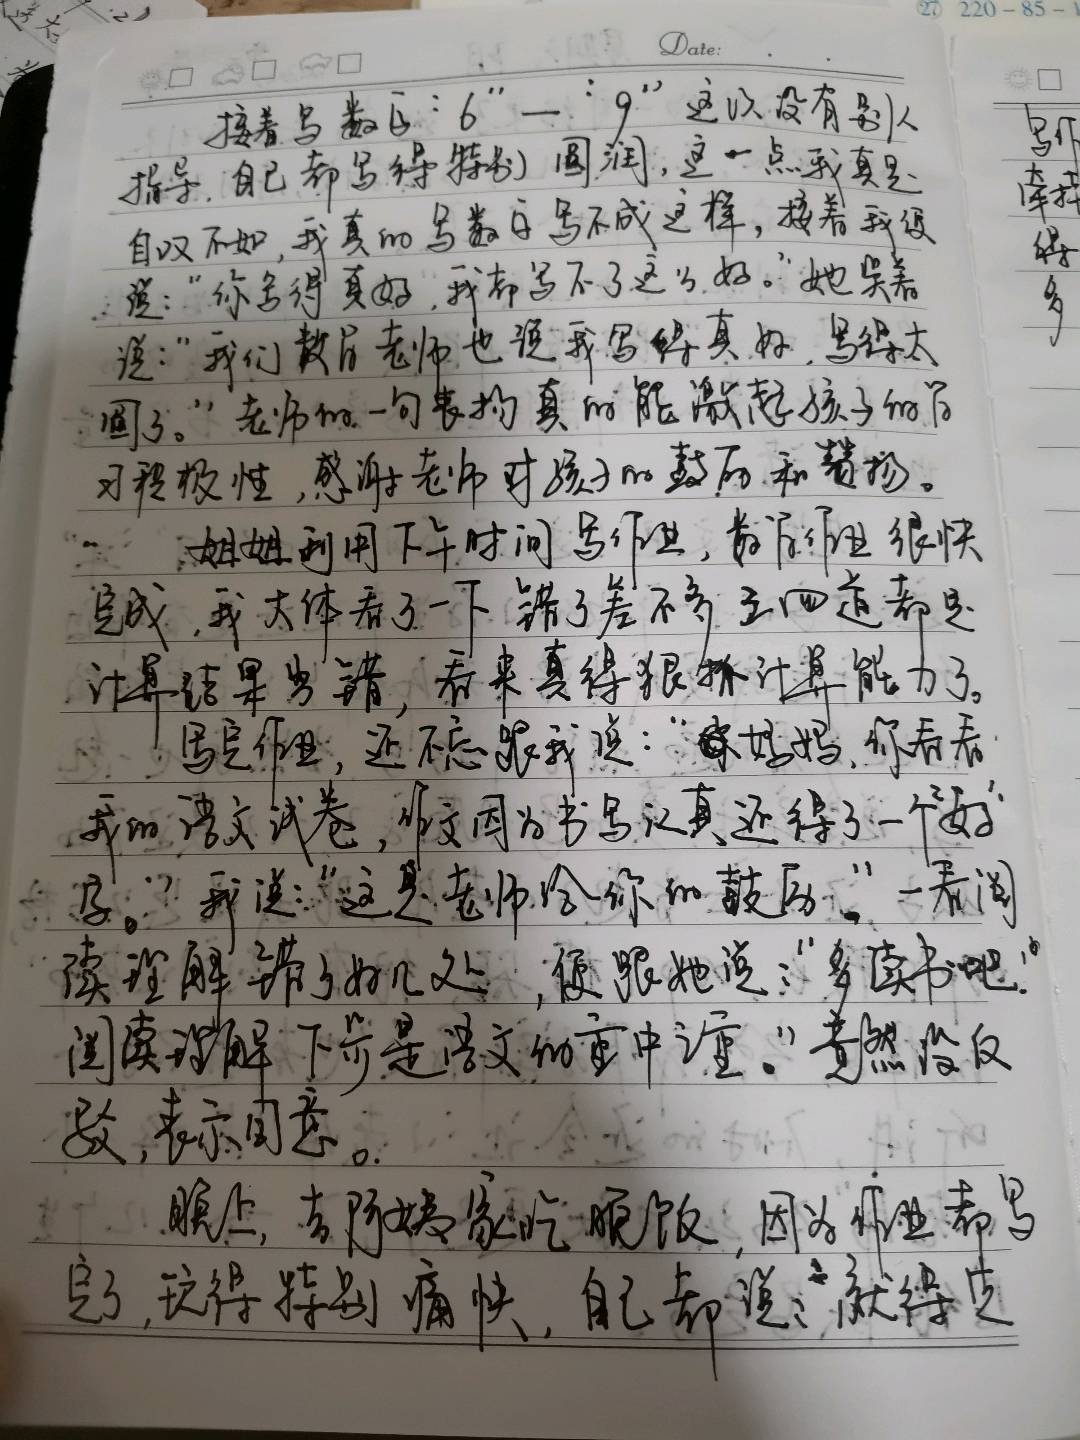 ㉗ 220-85-1
Date:
接着写数字“6”—“9”这次没有别人
指导,自己都写得特别圆润,这一点我真是
自叹不如,我真的写数字写不成这样,接着我便
说:“你写得真好,我都写不了这么好。”她笑着
说:“我们数学老师也说我写得真好,写得太
圆了。”老师的一句表扬真的能激起孩子的学
习积极性,感谢老师对孩子的鼓励和赞扬。
姐姐利用下午时间写作业,数学作业很快
完成,我大体看了一下错了差不多三四道都是
计算结果出错,看来真得狠抓计算能力了。
写完作业,还不忘跟我说:“妈妈,你看看
我的语文试卷,作文因为书写认真还得了一个“好”
字。”我说:“这是老师给你的鼓励。”一看阅
读理解错了好几处,便跟她说:“多读书吧!
阅读理解下步是语文的重中之重。”竟然没反
驳,表示同意。
晚上,去阿姨家吃晚饭,因为作业都写
完了,玩得特别痛快,自己却说:“就得先
写作
得
多